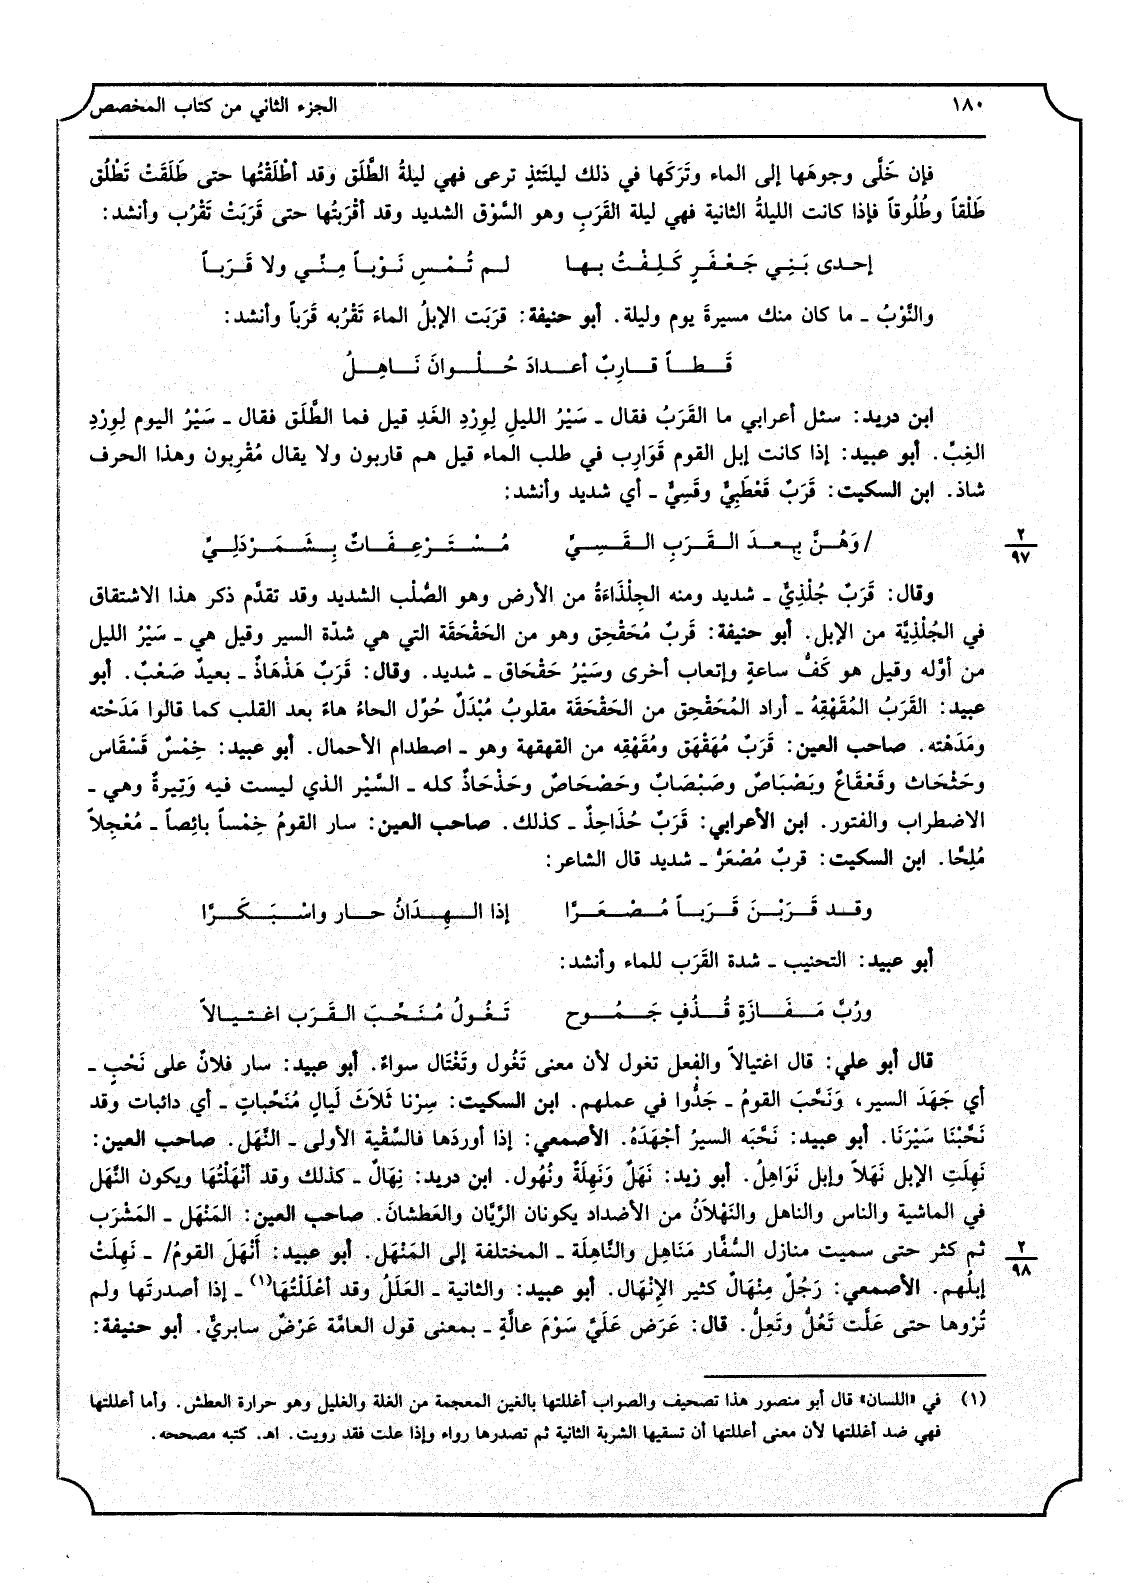 ١٨٠ الجزء الثاني من كتاب المخصص
فإن خَلَّى وجوهَها إلى الماء وتَرَكَها في ذلك ليلتَئذٍ ترعى فهي ليلةُ الطَّلَق وقد أطْلَقْتُها حتى طَلَقَتْ تَطْلُق
طَلْقاً وطُلُوقاً فإذا كانت الليلةُ الثانية فهي ليلة القَرَبِ وهو السَّوْق الشديد وقد أقْرَبتُها حتى قَرَبَتْ تَقْرُب وأنشد:
إحدى بَنِي جَعْفَرٍ كَلِفْتُ بها لم تُمْسِ نَوْباً مِنِّي ولا قَرَباً
والنَّوْبُ ـ ما كان منك مسيرةَ يوم وليلة. أبو حنيفة: قرَبَت الإبلُ الماءَ تَقْرُبه قَرَباً وأنشد:
قَطاً قارِبٌ أعدادَ حُلْوانَ نَاهِلُ
ابن دريد: سئل أعرابي ما القَرَبُ فقال ـ سَيْرُ الليلِ لِوِرْدِ الغَدِ قيل فما الطَّلَق فقال ـ سَيْرُ اليوم لِوِرْدِ
الغِبِّ. أبو عبيد: إذا كانت إبل القوم قَوَارِب في طلب الماء قيل هم قاربون ولا يقال مُقْرِبون وهذا الحرف
شاذ. ابن السكيت: قَرَبٌ قَعْطَبِيٌّ وقَسِيٌّ ـ أي شديد وأنشد:
/وَهُنَّ بعدَ القَرَبِ القَسِيِّ مُسْتَرعِفَاتٌ بِشَمَرْدَلِيِّ
٢
٩٧
وقال: قَرَبٌ جُلْذِيٌّ ـ شديد ومنه الجِلْذَاءَةُ من الأرض وهو الصُّلْب الشديد وقد تقدَّم ذكر هذا الاشتقاق
في الجُلْذِيَّة من الإبل. أبو حنيفة: قَربٌ مُحَقْحِق وهو من الحَقْحَقَة التي هي شدّة السير وقيل هي ـ سَيْرُ الليل
من أوَّله وقيل هو كَفُّ ساعةٍ وإتعاب أخرى وسَيْرُ حَقْحَاق ـ شديد. وقال: قَرَبٌ هَذْهَاذٌ ـ بعيدٌ صَعْبٌ. أبو
عبيد: القَرَبُ المُقَهْقِهُ ـ أراد المُحَقْحِق من الحَقْحَقة مقلوبُ مُبْدَلٌ حُوِّل الحاءُ هاءً بعد القلب كما قالوا مَدَحْته
ومَدَهْته. صاحب العين: قَرَبٌ مُهَقْهَق ومُقَهْقِه من القهقهة وهو ـ اصطدام الأحمال. أبو عبيد: خِمْسٌ قَسْقَاس
وحَثْحَاث وقَعْقَاعٌ وبَصْبَاصٌ وصَبْصَابٌ وحَصْحَاصٌ وحَذْحَاذٌ كله ـ السَّيْر الذي ليست فيه وَتِيرةٌ وهي ـ
الاضطراب والفتور. ابن الأعرابي: قَرَبٌ حُذَاحِذٌ ـ كذلك. صاحب العين: سار القومُ خِمْساً بائِصاً ـ مُعْجِلاً
مُلِحًّا. ابن السكيت: قربٌ مُصْعَرٌّ ـ شديد قال الشاعر:
وقد قَرَبْنَ قَرَباً مُصْعَرَّا إذا الهِدَانُ حار واسْبَكَرَّا
أبو عبيد: التحنيب ـ شدة القَرَب للماء وأنشد:
ورُبَّ مَفَازَةٍ قُذُفٍ جَمُوحٍ تَغُولُ مُنَحِّبَ القَرَبِ اغتيالاً
قال أبو علي: قال اغتيالاً والفعل تغول لأن معنى تَغُول وتَغْتَال سواءٌ. أبو عبيد: سار فلانٌ على نَحْبٍ ـ
أي جَهَدَ السير، وَنَحَّبَ القومُ ـ جَدُّوا في عملهم. ابن السكيت: سِرْنا ثَلاثَ لَيالٍ مُنَحِّباتٍ ـ أي دائبات وقد
نَحَّبْنَا سَيْرَنَا. أبو عبيد: نَحَّبَه السيرُ أجْهَدَهُ. الأصمعي: إذا أوردَها فالسَّقْية الأولى ـ النَّهَل. صاحب العين:
نَهِلَتِ الإبل نَهَلاً وإبل نَوَاهِلُ. أبو زيد: نَهَلٌ وَنَهِلَةٌ ونُهُول. ابن دريد: نِهَالٌ ـ كذلك وقد أنْهَلْتُهَا ويكون النَّهَل
في الماشية والناس والناهل والنَهْلاَنُ من الأضداد يكونان الرَّيَّان والعَطشانَ. صاحب العين: المَنْهَل ـ المَشْرَب
ثم كثر حتى سميت منازل السُّفَّار مَنَاهِل والنَّاهِلَة ـ المختلفة إلى المَنْهَل. أبو عبيد: أَنْهَلَ القومُ/ ـ نَهِلَتْ
٢
٩٨
إبلُهم. الأصمعي: رَجُلٌ مِنْهَالٌ كثير الإِنْهَال. أبو عبيد: والثانية ـ العَلَلُ وقد أعْلَلْتُهَا(١) ـ إذا أصدرتَها ولم
تُرْوها حتى عَلَّت تَعُلُّ وتَعِلُّ. قال: عَرَض عَلَيَّ سَوْمَ عالَّةٍ ـ بمعنى قول العامَّة عَرْضٌ سابريٌّ. أبو حنيفة:
(١) في «اللسان» قال أبو منصور هذا تصحيف والصواب أغللتها بالغين المعجمة من الغلة والغليل وهو حرارة العطش. وأما أعللتها
فهي ضد أغللتها لأن معنى أعللتها أن تسقيها الشربة الثانية ثم تصدرها رواء وإذا علت فقد رويت. اهـ. كتبه مصححه.